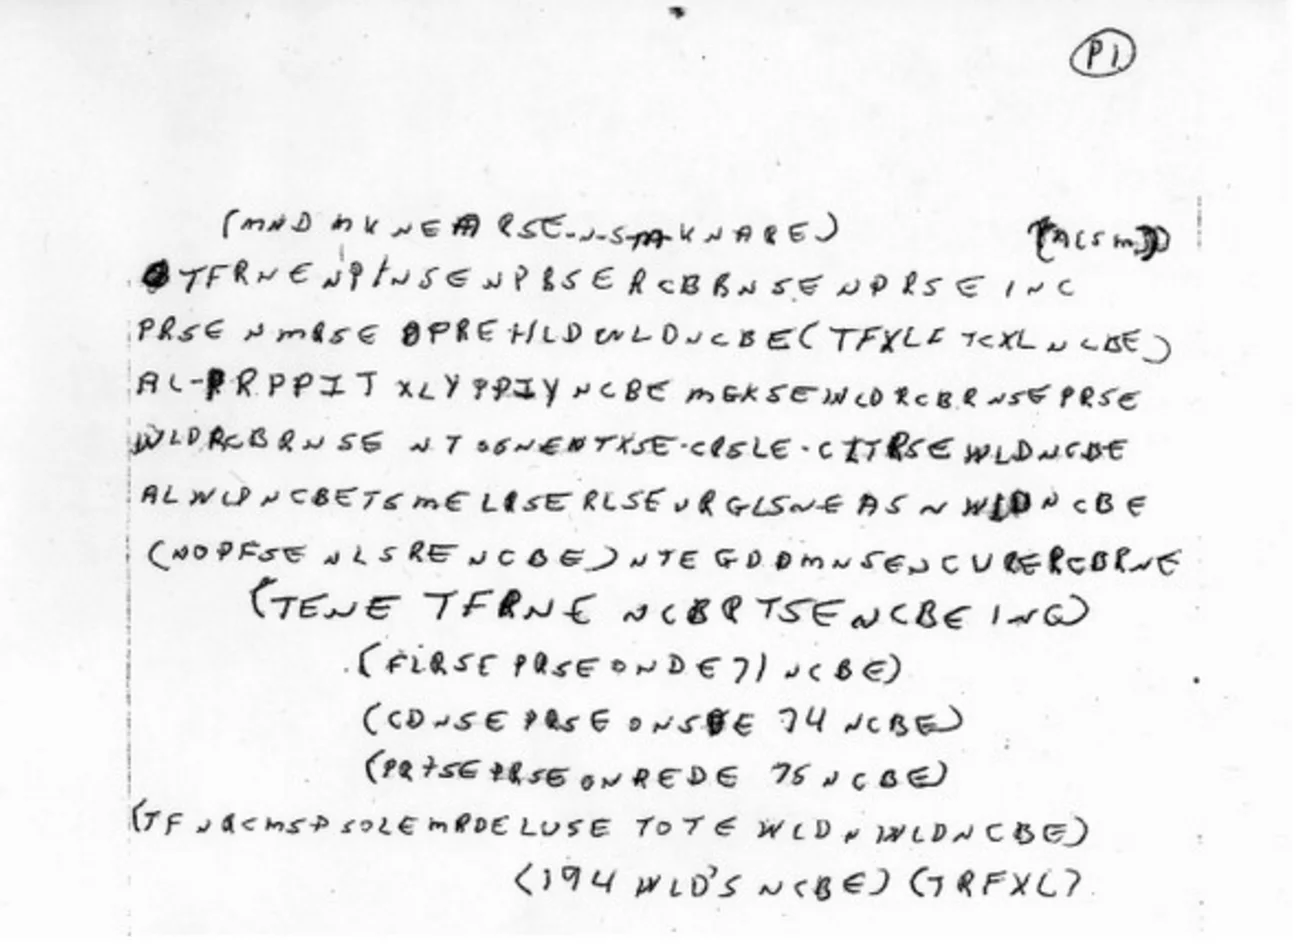 P1
(MND MKNEARSE-N-S-M-KNARE) (ACSM)
TFRNENPINSENPBSERCBBNSENPRSEINC
PRSENMRSEOPREHLDWLDNCBE(TFXLFTCXLNCBE)
AL-PRPPITXLYPPIYNCBEMGKSEWCDRCBRNSEPRSE
WLDRCBRNSENTOSNENTXSE-CRSLE-CITRSEWLDNCBE
ALWLPNCBETSMELRSERLSEURGLSNEASNWLDNCBE
(NOPFSENLSRENCBE)NTEGDDMNSENCURERCBRNE
(TENETFRNENCBRTSENCBEING)
(FLRSEPRSEONDE71NCBE)
(CDNSEPRSEONSDE74NCBE)
(PRTSEPRSEONREDE75NCBE)
(TFNRCMSPSOLEMRDELUSETOTEWLDNWLDNCBE)
(194WLD'SNCBE)(TRFXL)